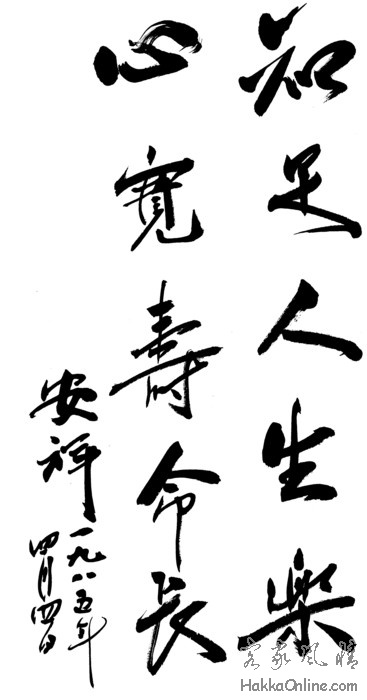 知足人生樂
心寬壽命長
安祥
一九八五年
四月四日
客家風情
HakkaOnline.com